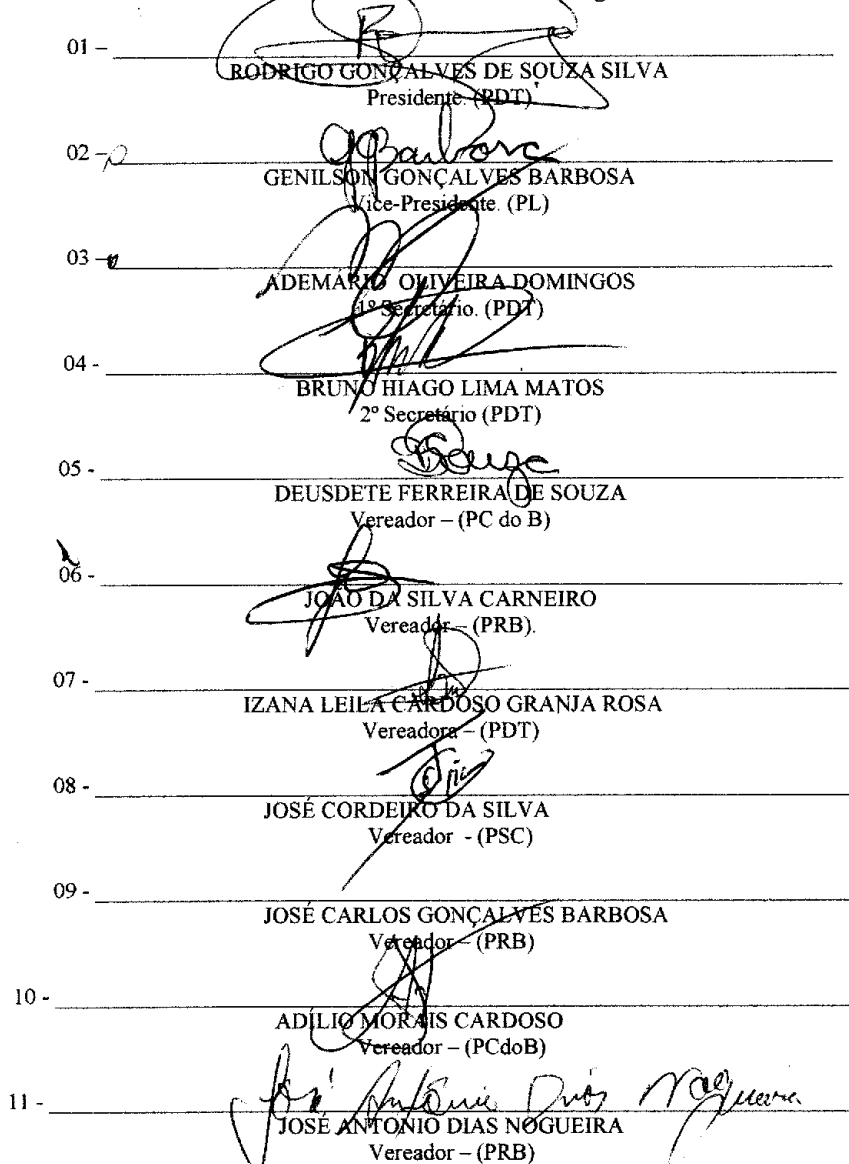 01 –
RODRIGO GONÇALVES DE SOUZA SILVA
Presidente. (PDT)
GBarbosa
02 –
GENILSON GONÇALVES BARBOSA
Vice-Presidente. (PL)
03 –
ADEMARIO OLIVEIRA DOMINGOS
1º Secretário. (PDT)
04 -
BRUNO HIAGO LIMA MATOS
2º Secretário (PDT)
05 -
DEUSDETE FERREIRA DE SOUZA
Vereador – (PC do B)
06 -
JOÃO DA SILVA CARNEIRO
Vereador – (PRB).
07 -
IZANA LEILA CARDOSO GRANJA ROSA
Vereadora – (PDT)
08 -
JOSÉ CORDEIRO DA SILVA
Vereador - (PSC)
09 -
JOSÉ CARLOS GONÇALVES BARBOSA
Vereador – (PRB)
10 -
ADÍLIO MORAIS CARDOSO
Vereador – (PCdoB)
José Antônio Dias Nogueira
11 -
JOSÉ ANTONIO DIAS NOGUEIRA
Vereador – (PRB)